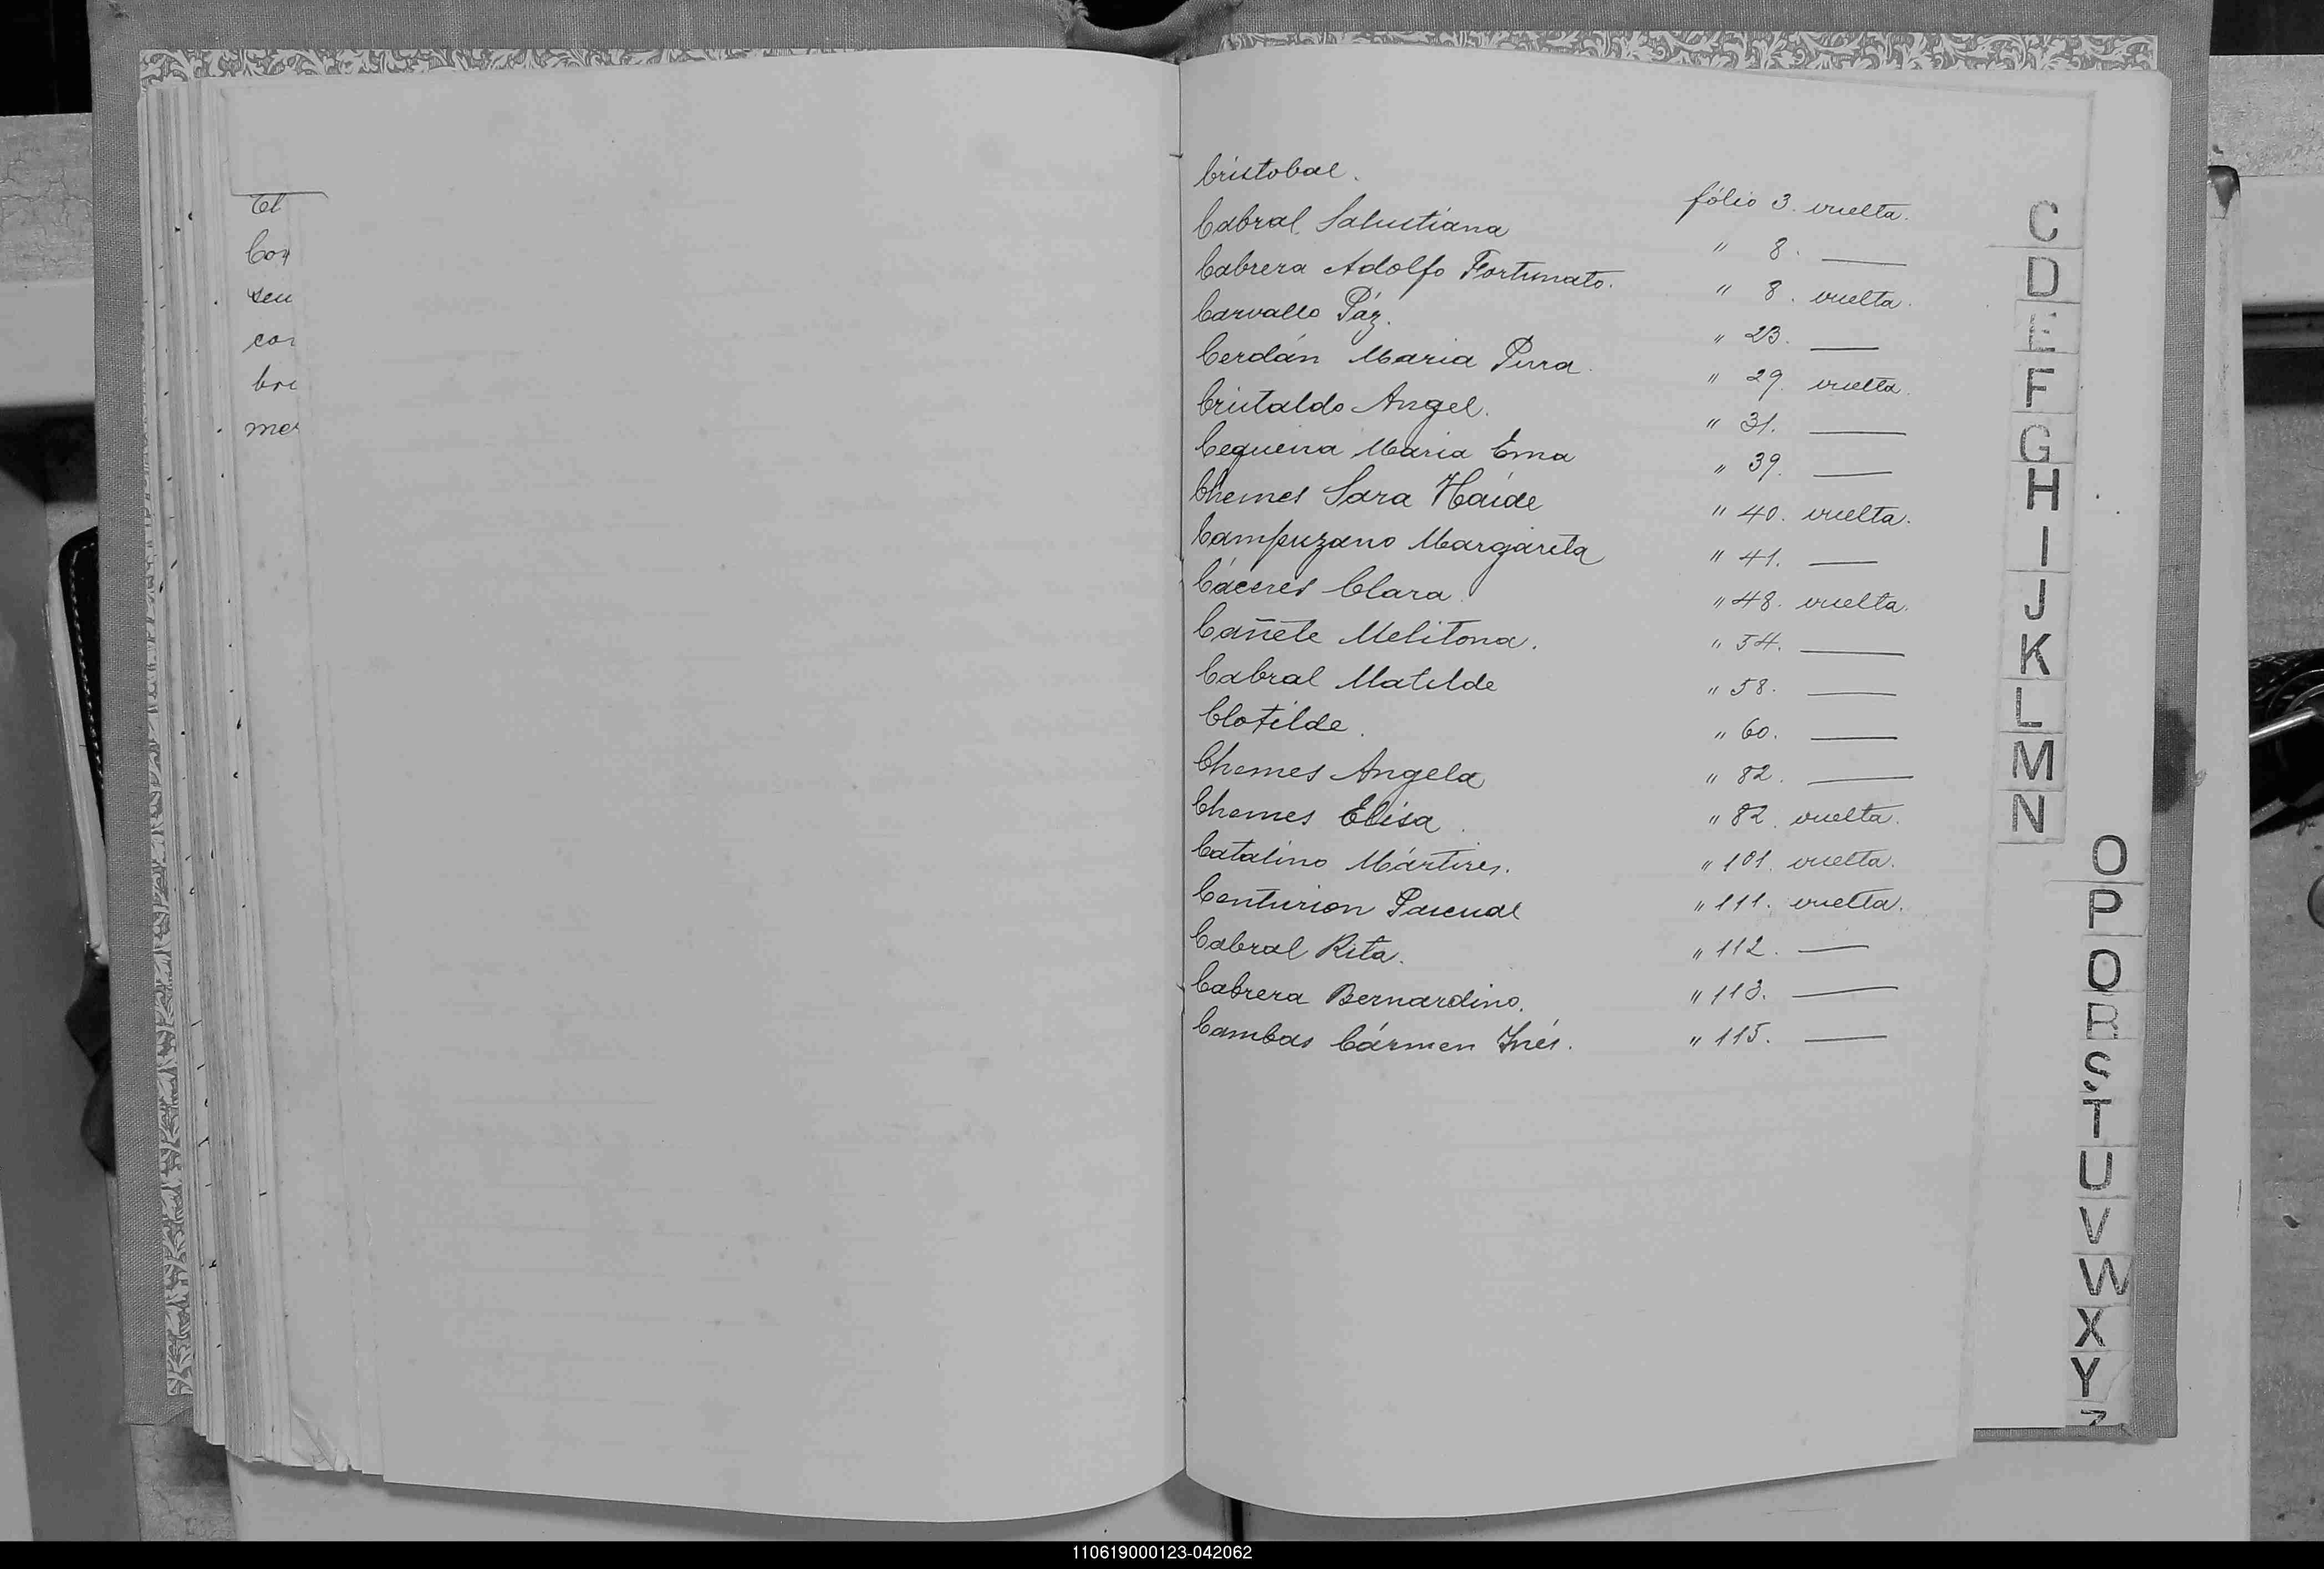 El
Cristobal. fólio 3. vuelta.
Cabral Salustiana " 8. ——
Cabrera Adolfo Fortunato. " 8. vuelta.
Carvallo Páz. " 23. ——
Cerdán Maria Pura. " 29. vuelta.
Cristaldo Angel. " 31. ——
Cequeira Maria Ema " 39. ——
Chemes Sara Haíde " 40. vuelta.
Campuzano Margarita " 41. ——
Cáceres Clara. " 48. vuelta.
Cañete Melitona. " 54. ——
Cabral Matilde " 58. ——
Clotilde. " 60. ——
Chemes Angela " 82. ——
Chemes Elisa. " 82. vuelta.
Catalino Mártires. " 101. vuelta.
Centurion Pascual " 111. vuelta.
Cabral Rita. " 112. ——
Cabrera Bernardino. " 113. ——
Cambas Cármen Inés. " 115. ——
C
D
E
F
G
H
I
J
K
L
M
N
O
P
Q
R
S
T
U
V
W
X
Y
Z
110619000123-042062